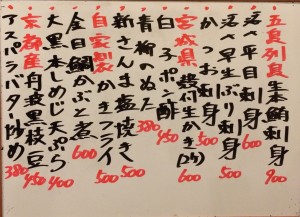 五島列島 生本鮪刺身 900
活〆平目刺身 600
活〆早生ぶり刺身 600
かつお刺身 500
宮城県 殻付生かき(2ケ) 600
白子ポン酢 450
青柳のぬた 380
新さんま塩焼き 500
自家製 かきフライ 500
金目鯛かぶと煮 600
大黒本しめじ天ぷら 400
京都産 丹波黒枝豆 450
アスパラバター炒め 380